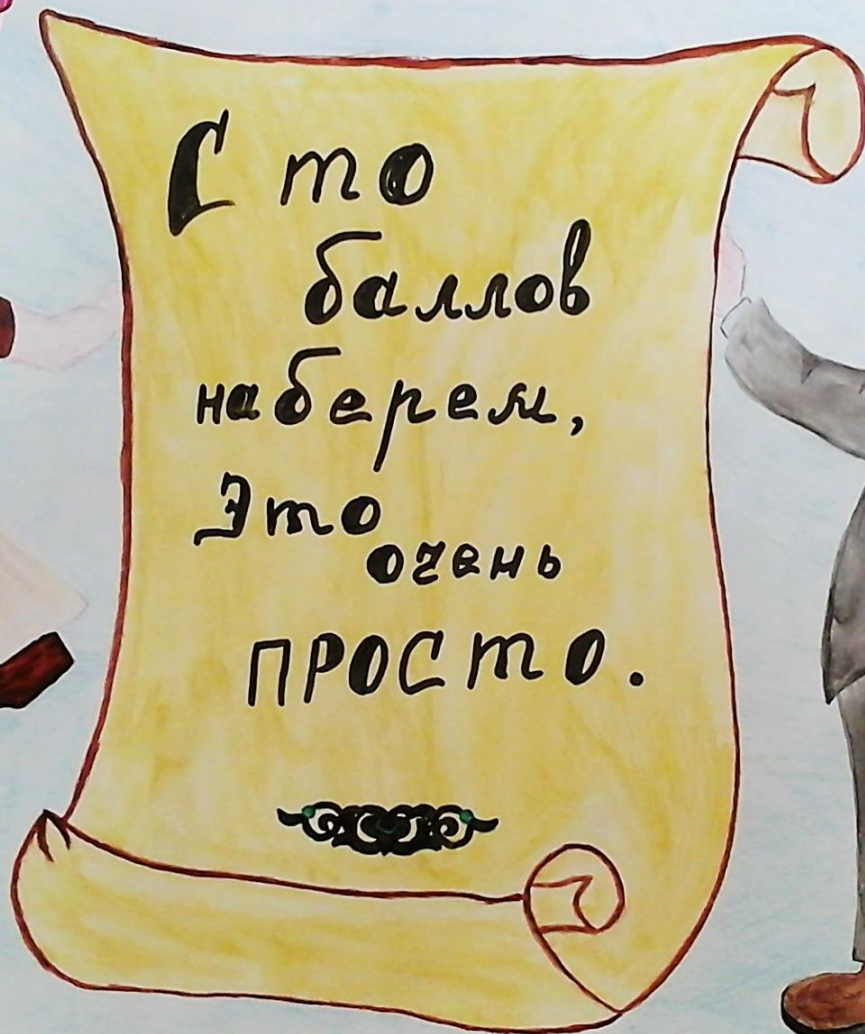 Сто
баллов
наберем,
Это
очень
ПРОСТО.